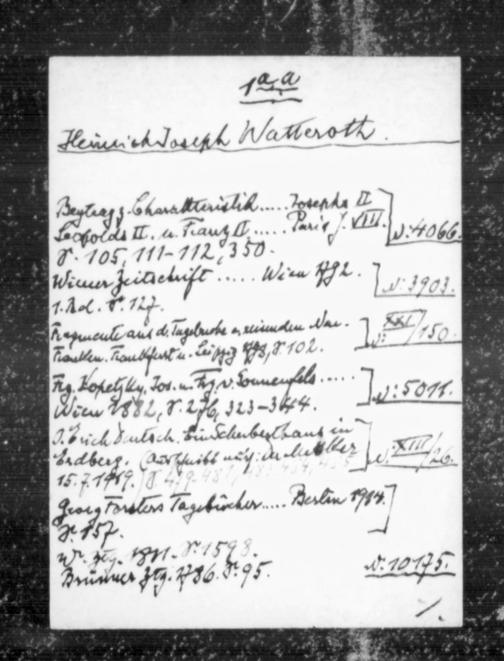 1 a a
Heinrich Joseph Watteroth.
Beytrag z. Charakteristik..... Josephs II
Leopolds II. u. Franz II..... Paris J. VIII. N: 4066.
S. 105, 111-112, 350.
Wiener Zeitschrift..... Wien 1792. N: 3903.
1. Bd. S. 127.
Fragmente aus d. Tagebuche e. reisenden Neu-
Franken. Frankfurt u. Leipzig 1798, S. 102. N: XXI/150.
Frz. Kopetzky. Jos. u. Frz. v. Sonnenfels.....
Wien 1882, S. 276, 323-344. N: 5011.
O. Erich Deutsch. Ein Schuberthaus in
Erdberg. N: XIII/26.
15.7.1919.
Georg Forsters Tagebücher..... Berlin 1914.
S. 157.
Wr. Ztg. 1811. S. 1598.
Brünner Ztg. 1786. S. 95. N: 10175.
1.